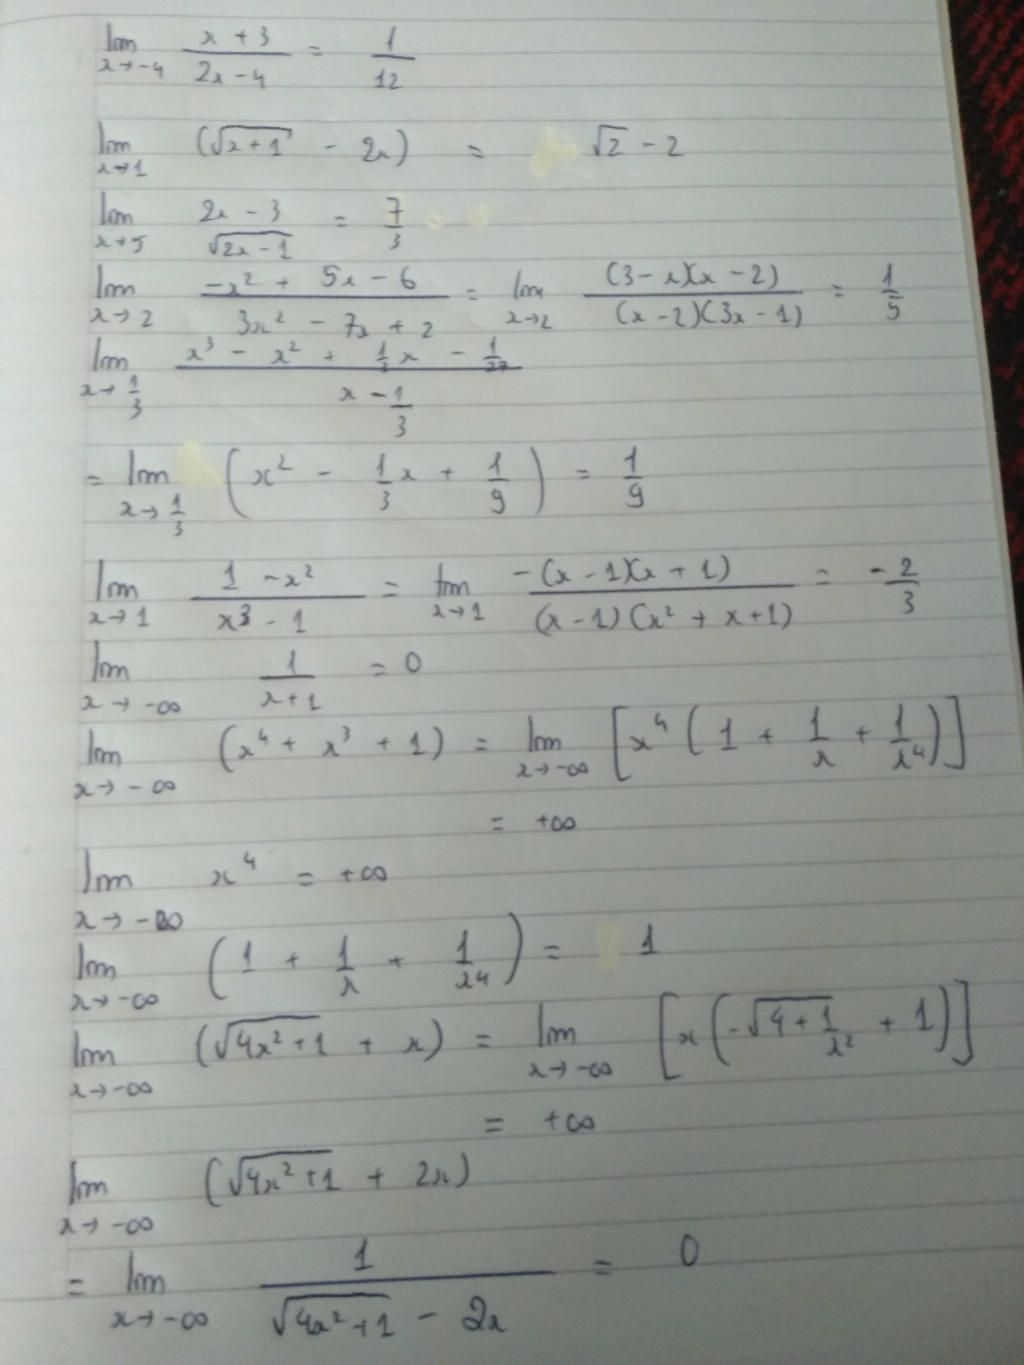 lim x→-4 (x + 3)/(2x - 4) = 1/12
lim x→1 (√(x+1) - 2x) = √2 - 2
lim x→5 (2x - 3)/√(2x - 1) = 7/3
lim x→2 (-x² + 5x - 6)/(3x² - 7x + 2) = lim x→2 ((3-x)(x-2))/((x-2)(3x-1)) = 1/5
lim x→1/3 (x³ - x² + 1/3 x - 1/27)/(x - 1/3)
= lim x→1/3 (x² - 1/3 x + 1/9) = 1/9
lim x→1 (1 - x²)/(x³ - 1) = lim x→1 (-(x-1)(x+1))/((x-1)(x² + x + 1)) = -2/3
lim x→-∞ 1/(x+1) = 0
lim x→-∞ (x⁴ + x³ + 1) = lim x→-∞ [x⁴ (1 + 1/x + 1/x⁴)]
= +∞
lim x→-∞ x⁴ = +∞
lim x→-∞ (1 + 1/x + 1/x⁴) = 1
lim x→-∞ (√(4x²+1) + x) = lim x→-∞ [x(-√(4 + 1/x²) + 1)]
= +∞
lim x→-∞ (√(4x²+1) + 2x)
= lim x→-∞ 1/(√(4x²+1) - 2x) = 0